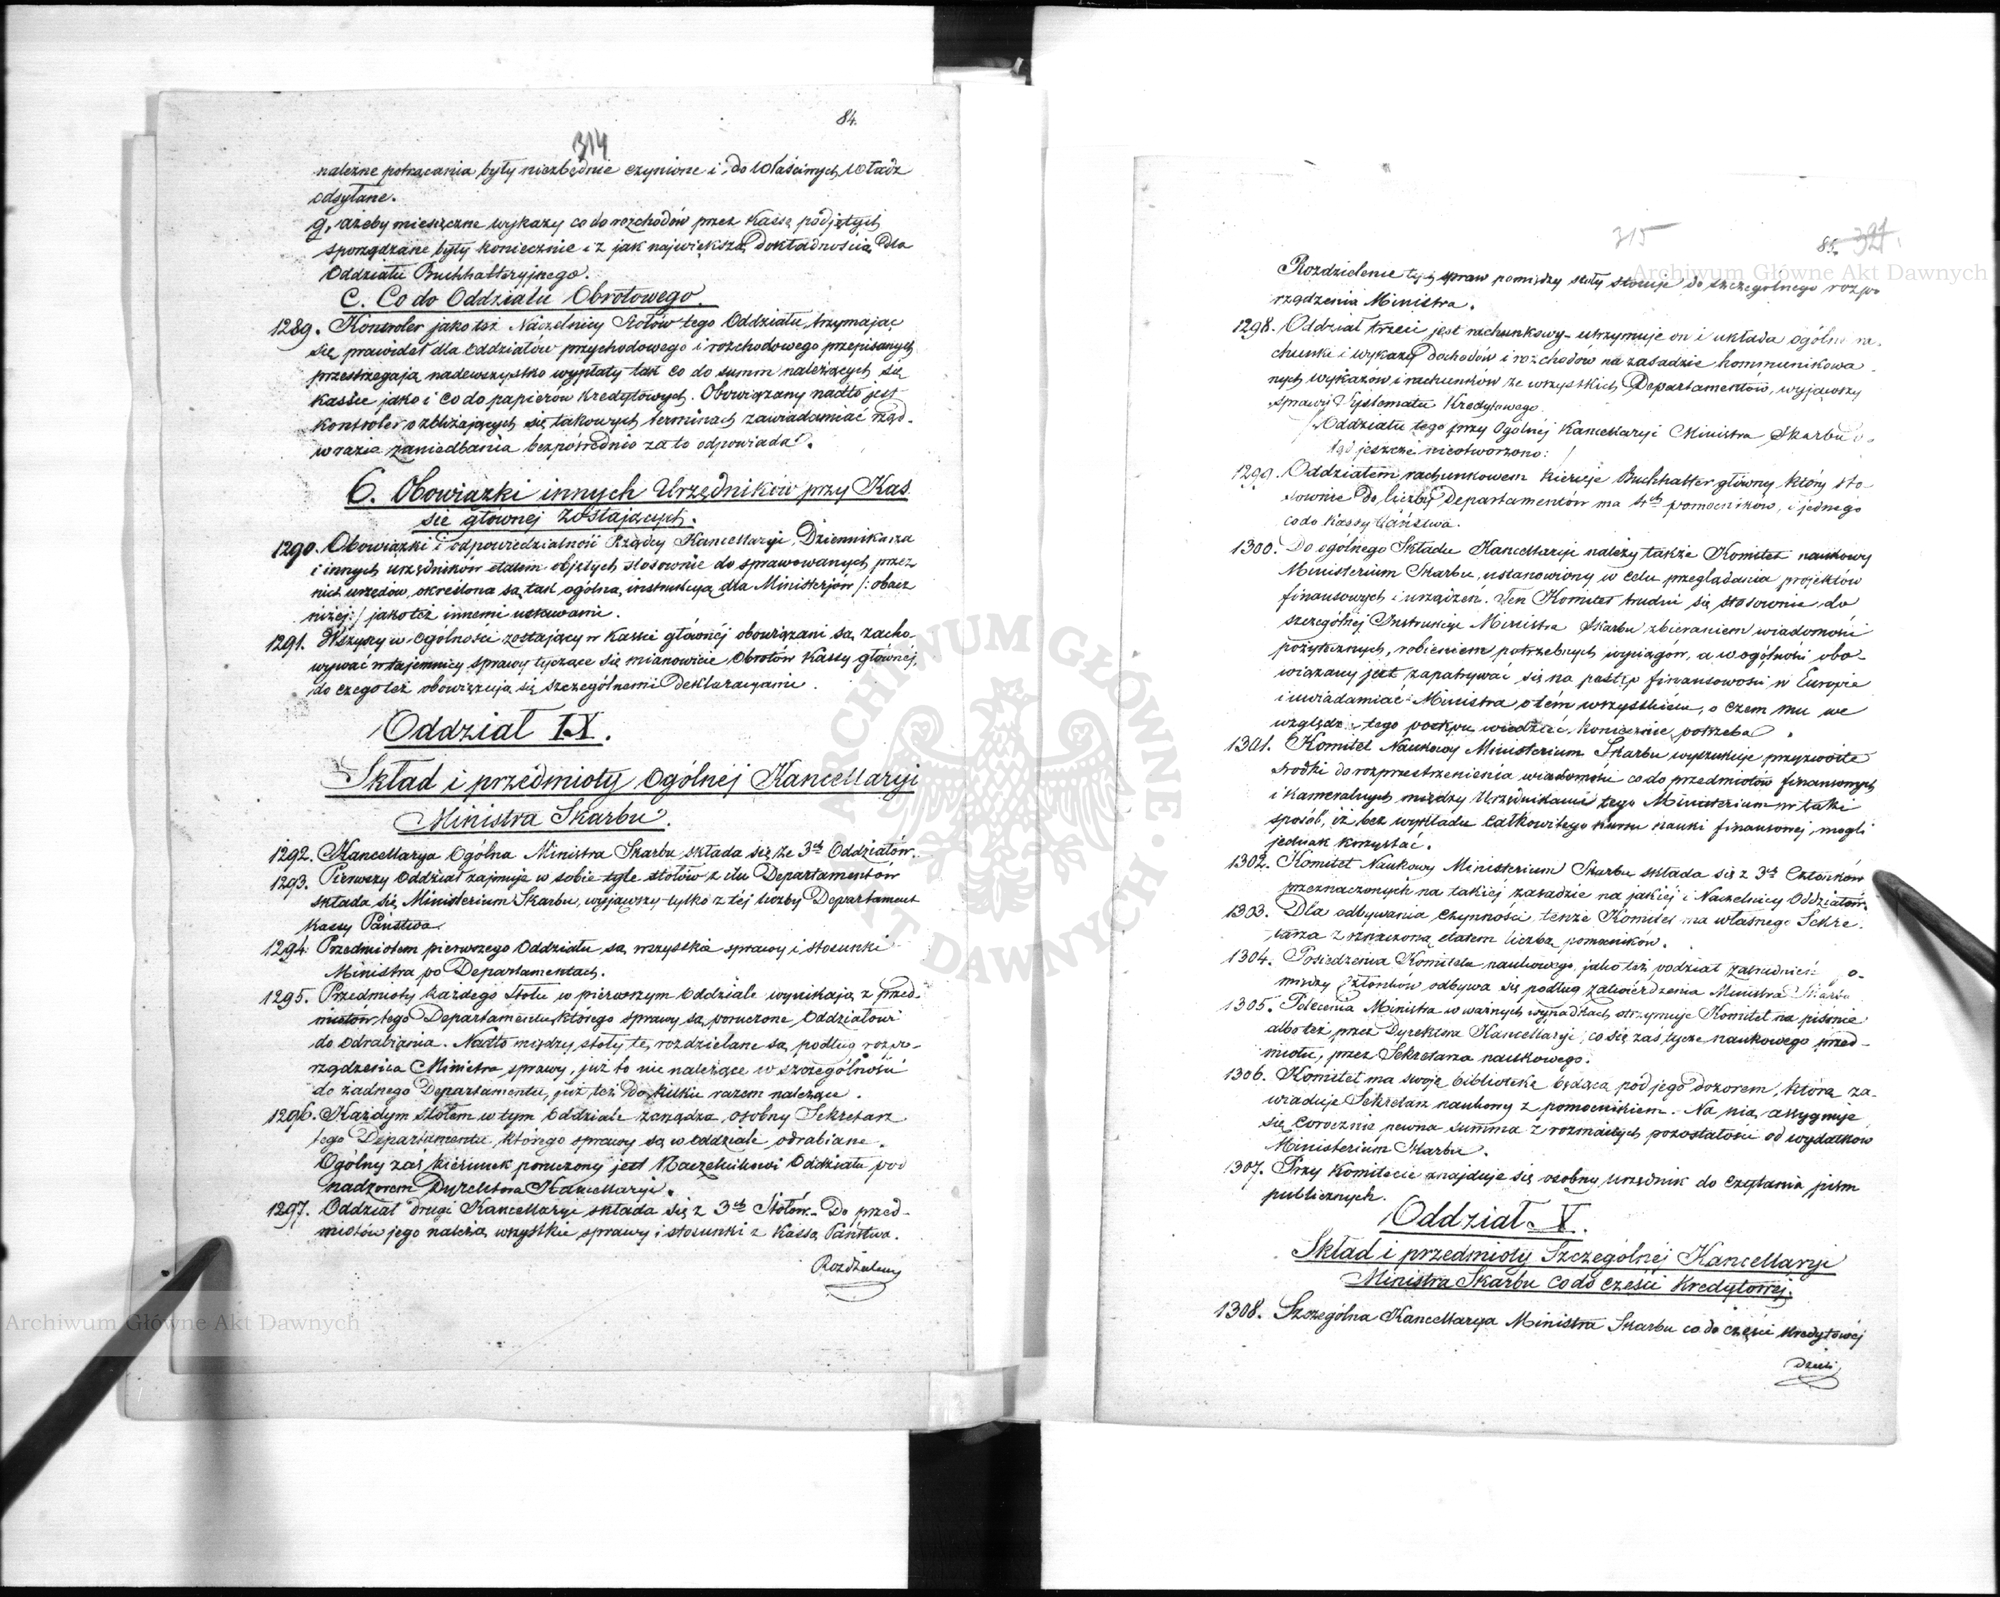 84.
314
należne potrącania były niezbędnie czynione i do Właściwych Władz
odsyłane.
g, ażeby miesięczne wykazy co do rozchodów przez Kassę podjętych
sporządzane były koniecznie i z jak największą Dokładnością dla
Oddziału Buchhalteryjnego.
C. Co do Oddziału Obrotowego.
1289. Kontroler jako też Naczelnicy Stołów tego Oddziału, trzymając
się prawideł dla Oddziałów przychodowego i rozchodowego przepisanych
przestrzegają nadewszystko wypłaty tak co do summ należących się
Kassie jako i co do papierów Kredytowych. Obowiązany nadto jest
Kontroler o zbliżających się takowych terminach zawiadamiać Rząd.
w razie zaniedbania bezpośrednio za to odpowiada.
6. Obowiązki innych Urzędników przy Kas
sie głównej zostających.
1290. Obowiązki i odpowiedzialność Rządcy Kancellaryi, Dziennikarza
i innych urzędników etatem objętych stosownie do sprawowanych przez
nich urzędów, określona są tak ogólną instrukcyą dla Ministerjów /: obacz
niżej:/ jako też innemi ustawami.
1291. Wszyscy w ogólności zostający w Kassie głównéj obowiązani są zacho-
wywać w tajemnicy sprawy tyczące się mianowicie Obrotów Kassy głównéj,
do czego też obowiązują się szczególnemi Deklaracyami.
Oddział IX.
Skład i przedmioty Ogólnej Kancellaryi
Ministra Skarbu.
1292. Kancellarya Ogólna Ministra Skarbu składa się ze 3ch Oddziałów.
1293. Pierwszy Oddział zajmuje w sobie tyle stołów z ilu Departamentów
składa się Ministerium Skarbu, wyjąwszy tylko z téj liczby Departament
Kassy Państwa.
1294. Przedmiotem pierwszego Oddziału są wszystkie sprawy i stosunki
Ministra po Departamentach.
1295. Przedmioty każdego Stołu w pierwszym Oddziale wynikają z przed-
miotów tego Departamentu, którego sprawy są poruczone Oddziałowi
do odrabiania. Nadto między stoły te rozdzielane są podług rozpo-
rządzenia Ministra sprawy, już to nie należące w szczególności
do żadnego Departamentu, już też Do kilku razem należące.
1296. Każdym Stołem w tym Oddziale zarządza osobny Sekretarz
tego Departamentu, którego sprawy są w oddziale odrabiane.
Ogólny zaś kierunek poruczony jest Naczelnikowi Oddziału pod
nadzorem Dyrektora Kancellaryi.
1297. Oddział drugi Kancellaryi składa się z 3ch Stołów. Do przed-
miotów jego należą wszystkie sprawy i stosunki z Kassą Państwa.
Rozdzielenie
315
85. 321.
Rozdzielenie tych spraw pomiędzy stoły stosuje do szczególnego rozpo
rządzenia Ministra.
1298. Oddział trzeci jest rachunkowy - utrzymuje on i układa ogólne ra-
chunki i wykazy Dochodów i rozchodów na zasadzie kommunikowa-
nych wykazów i rachunków ze wszystkich Departamentów, wyjąwszy
sprawy Systematu Kredytowego.
/: Oddziału tego przy Ogólnej Kancellaryi Ministra Skarbu
tąd jeszcze nieotworzono: /
1299. Oddziałem rachunkowem kieruje Buchhalter główny, który sto-
sownie Do liczby Departamentów ma 4ch pomocników, i jednego
co do Kassy Państwa.
1300. Do ogólnego Składu Kancellaryi należy także Komitet naukowy
Ministerium Skarbu, ustanowiony w celu przeglądania projektów
finansowych i urządzeń. Ten Komitet trudni się stosownie do
szczególnéj Instrukcyi Ministra Skarbu zbieraniem wiadomości
pożytecznych, robieniem potrzebnych wyciągów, a w ogólności obo-
wiązany jest zapatrywać się na postęp finansowości w Europie
i uwiadamiać Ministra o tém wszystkiém, o czem mu we
względzie tego postępu wiedzieć koniecznie potrzeba.
1301. Komitet Naukowy Ministerium Skarbu wyszukuje przyzwoite
środki do rozprzestrzenienia wiadomości co do przedmiotów finansowych
i kameralnych między Urzędnikami tego Ministerium w taki
sposób, iż bez wykładu całkowitego kursu nauki finansowej, mogli
jednak korzystać.
1302. Komitet Naukowy Ministerium Skarbu składa się z 3ch Członków
przeznaczonych na takiéj zasadzie na jakiéj i Naczelnicy Oddziałów.
1303. Dla odbywania czynności tenże Komitet ma własnego Sekre-
tarza z oznaczoną etatem liczbą pomocników.
1304. Posiedzenia Komitetu naukowego, jako też podział zatrudnień po-
między Członków odbywa się podług zatwierdzenia Ministra Skarbu
1305. Polecenia Ministra w ważnych wypadkach otrzymuje Komitet na piśmie
albo też przez Dyrektora Kancellaryi, co się zaś tycze naukowego przed-
miotu, przez Sekretarza naukowego.
1306. Komitet ma swoją bibliotekę będącą pod jego dozorem, którą za-
wiaduje Sekretarz naukowy z pomocnikiem. Na nią assygnuje
się corocznie pewna summa z rozmaitych pozostałości od wydatków
Ministerium Skarbu.
1307. Przy Komitecie znajduje się osobny urzędnik do czytania pism
publicznych.
Oddział X.
Skład i przedmioty Szczególnéj Kancellaryi
Ministra Skarbu co do części Kredytowéj.
1308. Szczególna Kancellarya Ministra Skarbu co do części Kredytowéj
dzieli
Archiwum Główne Akt Dawnych
Archiwum Główne Akt Dawnych
ARCHIWUM GŁÓWNE · AKT DAWNYCH ·